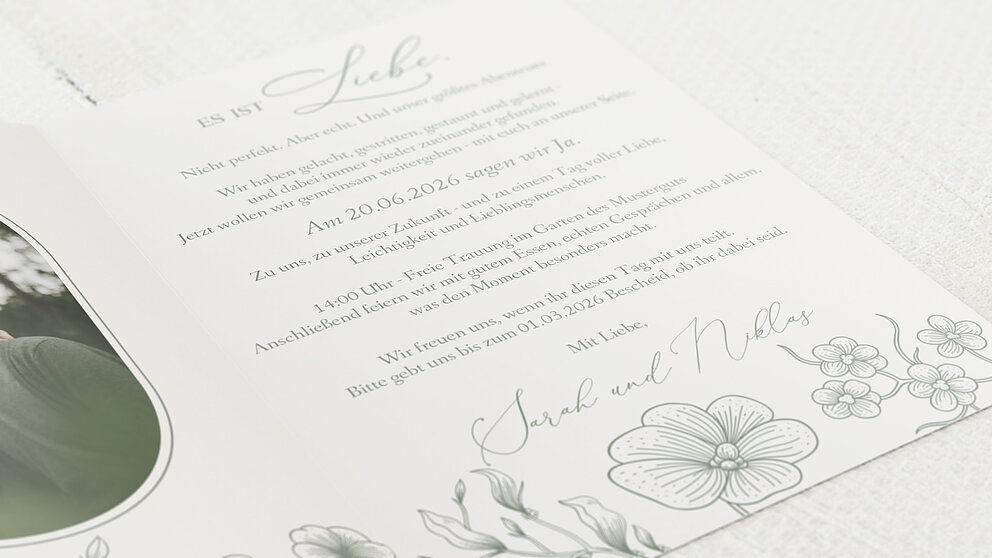 ES IST Liebe.
Nicht perfekt. Aber echt. Und unser größtes Abenteuer.
Wir haben gelacht, gestritten, gestaunt und gelernt
und dabei immer wieder zueinander gefunden.
Jetzt wollen wir gemeinsam weitergehen - mit euch an unserer Seite.
Am 20.06.2026 sagen wir Ja.
Zu uns, zu unserer Zukunft - und zu einem Tag voller Liebe,
Leichtigkeit und Lieblingsmenschen.
14:00 Uhr - Freie Trauung im Garten des Musterguts
Anschließend feiern wir mit gutem Essen, echten Gesprächen und allem,
was den Moment besonders macht.
Wir freuen uns, wenn ihr diesen Tag mit uns teilt.
Bitte gebt uns bis zum 01.03.2026 Bescheid, ob ihr dabei seid.
Mit Liebe,
Sarah und Niklas